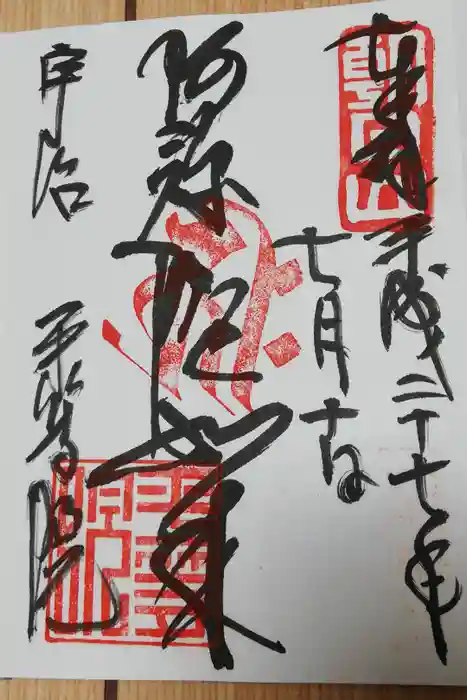 奉拝
平成二十七年
七月
阿弥陀如来
宇治 平等院